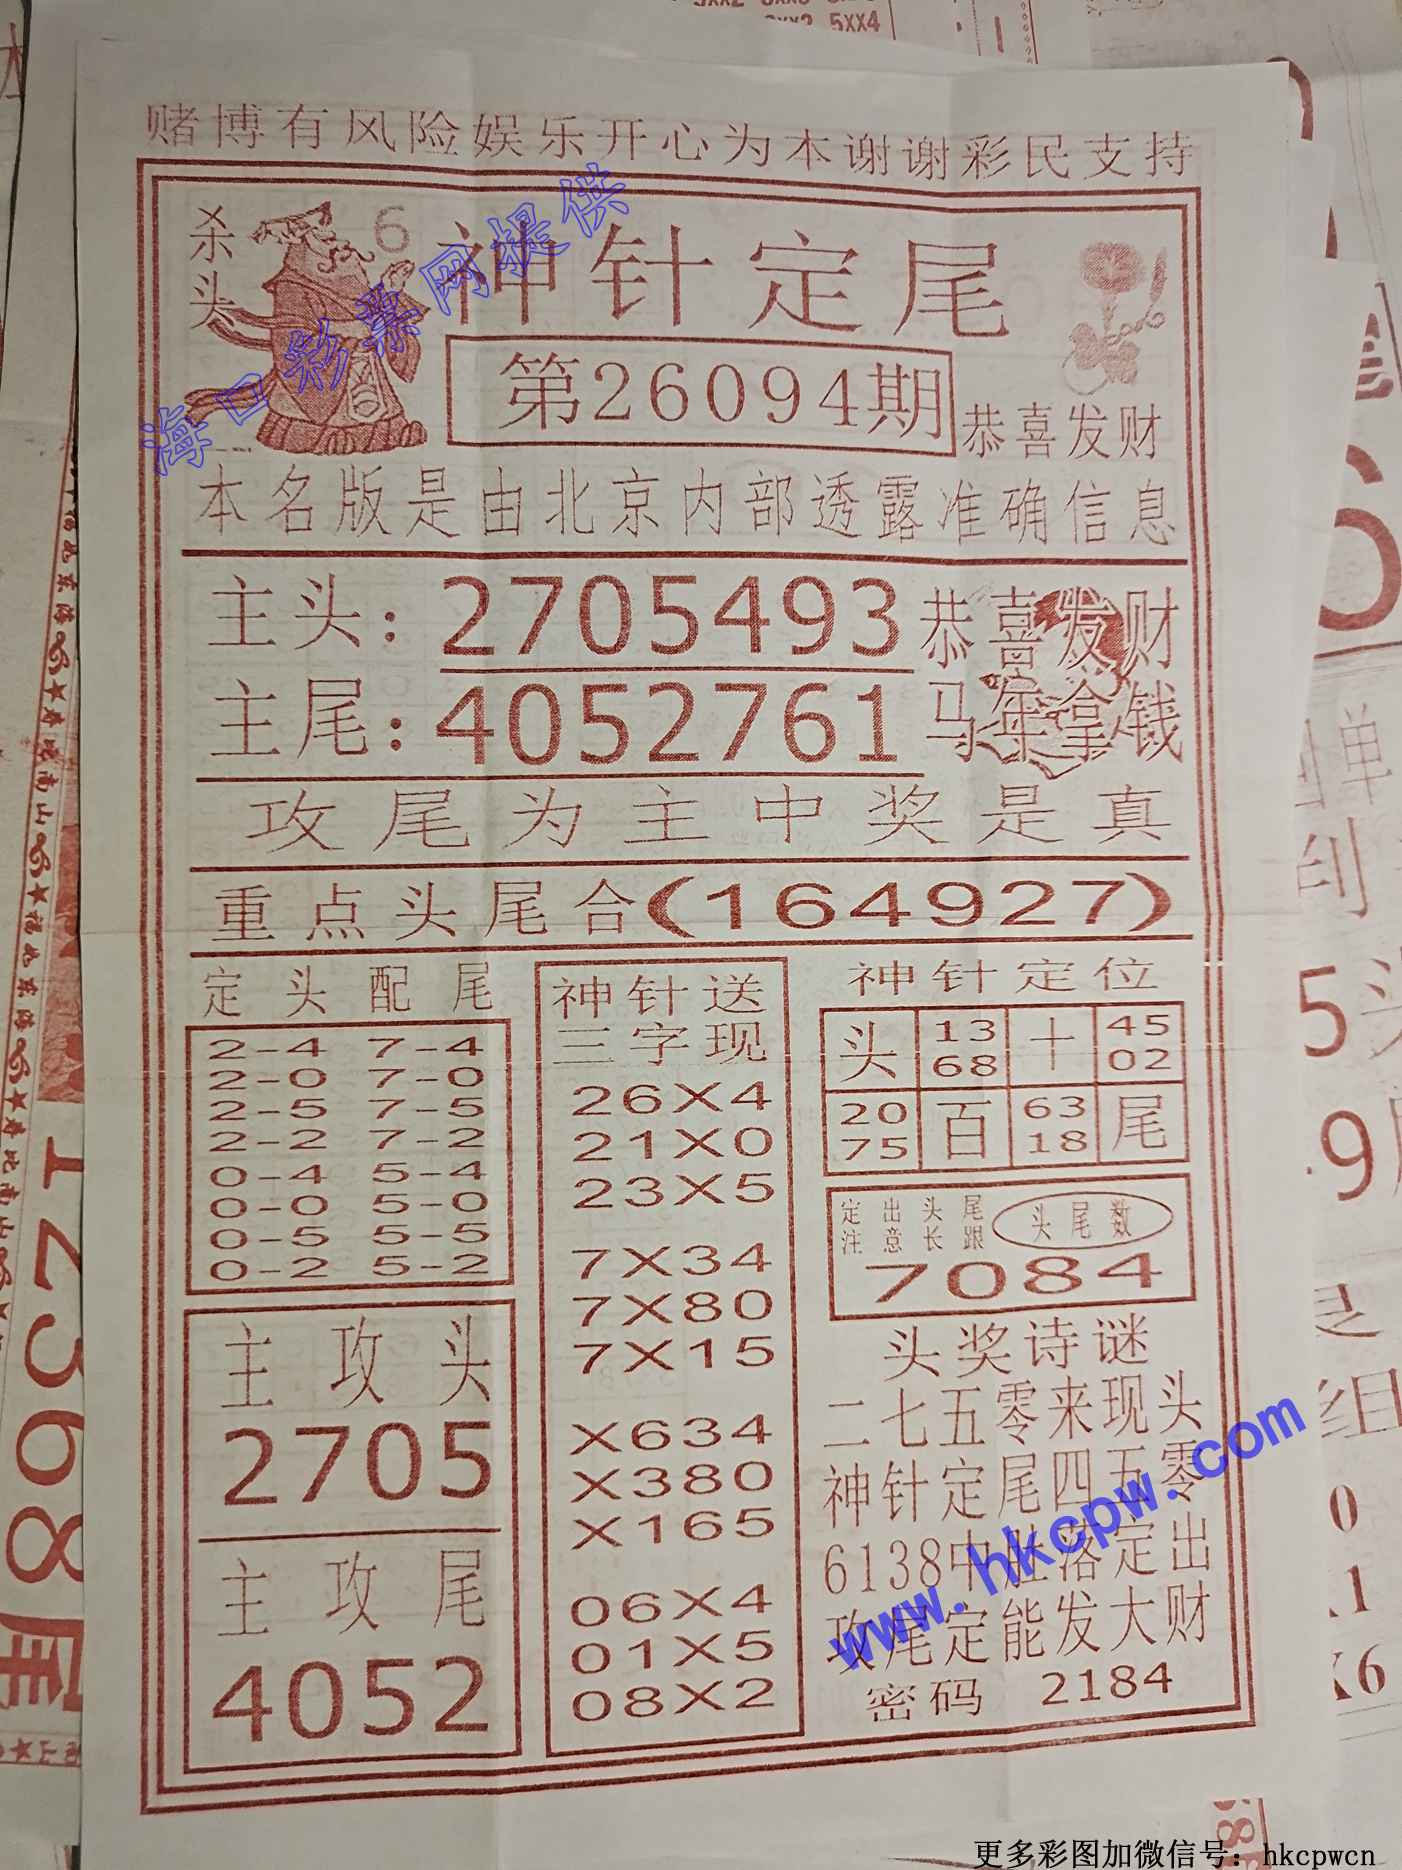 赌博有风险娱乐开心为本谢谢彩民支持
杀头
6
神针定尾
第26094期
恭喜发财
海口彩票网提供
本名版是由北京内部透露准确信息
主头：2705493
恭喜发财
主尾：4052761
马年拿钱
攻尾为主中奖是真
重点头尾合(164927)
定头配尾
2-4 7-4
2-0 7-0
2-5 7-5
2-2 7-2
0-4 5-4
0-0 5-0
0-5 5-5
0-2 5-2
主攻头
2705
主攻尾
4052
神针送
三字现
26X4
21X0
23X5
7X34
7X80
7X15
X634
X380
X165
06X4
01X5
08X2
神针定位
头 13 十 45
68 02
20 百 63 尾
75 18
定出头尾
注意长跟
头尾数
7084
头奖诗谜
二七五零来现头
神针定尾四五零
6138中肚落定出
攻尾定能发大财
密码 2184
www.hkcpw.com
更多彩图加微信号：hkcpwcn
5XX4
1Z3968尾